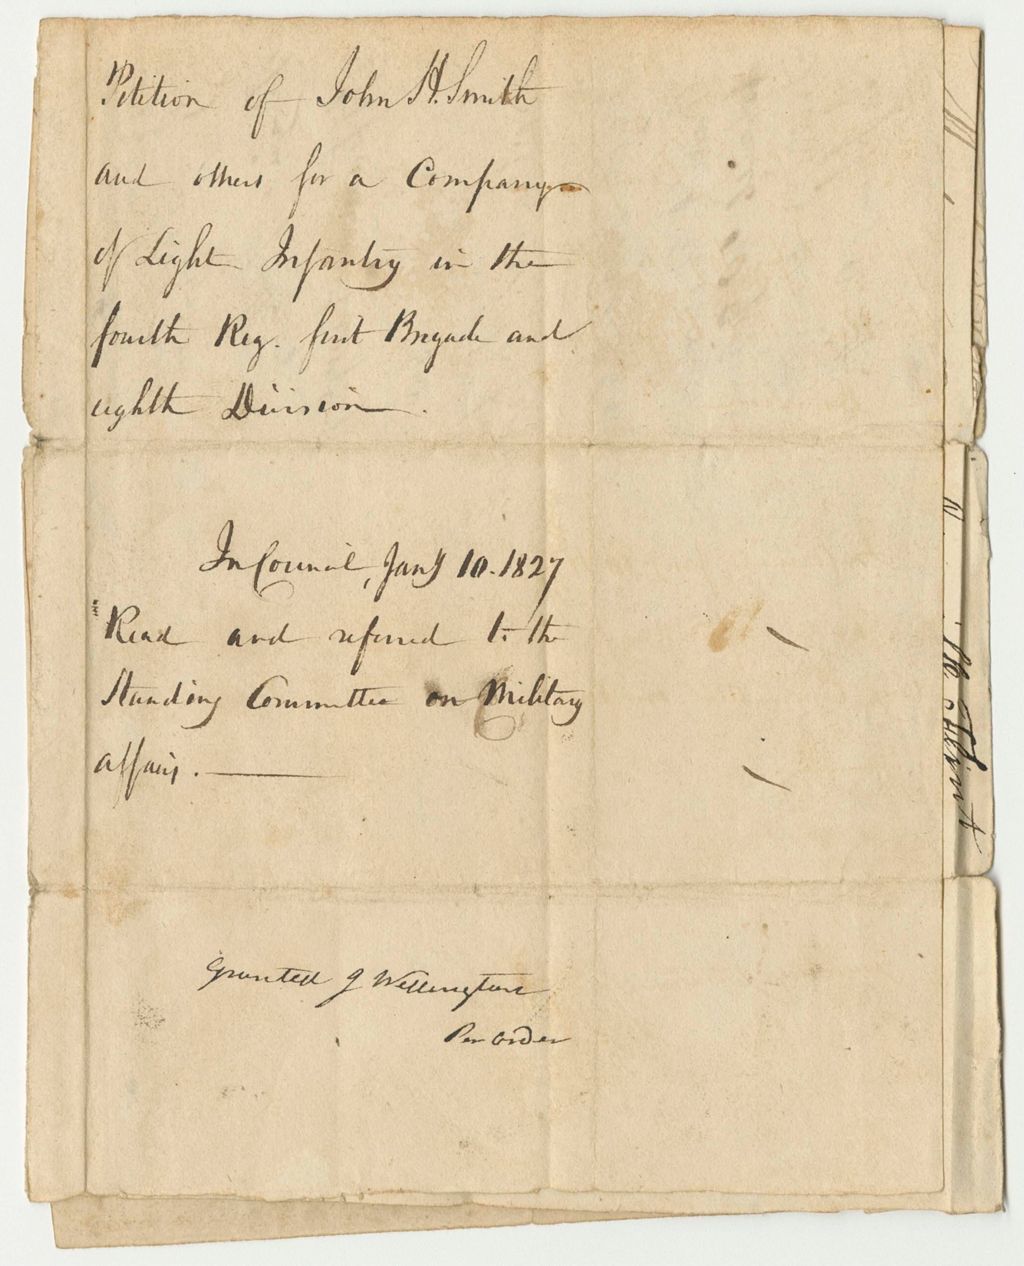 Petition of John H. Smith
and others for a Company
of Light Infantry in the
fourth Reg. first Brigade and
eighth Division.
In Council, Jany 10. 1827
Read and referred to the
Standing Committee on Military
affairs.
Granted J Wellington
Per order